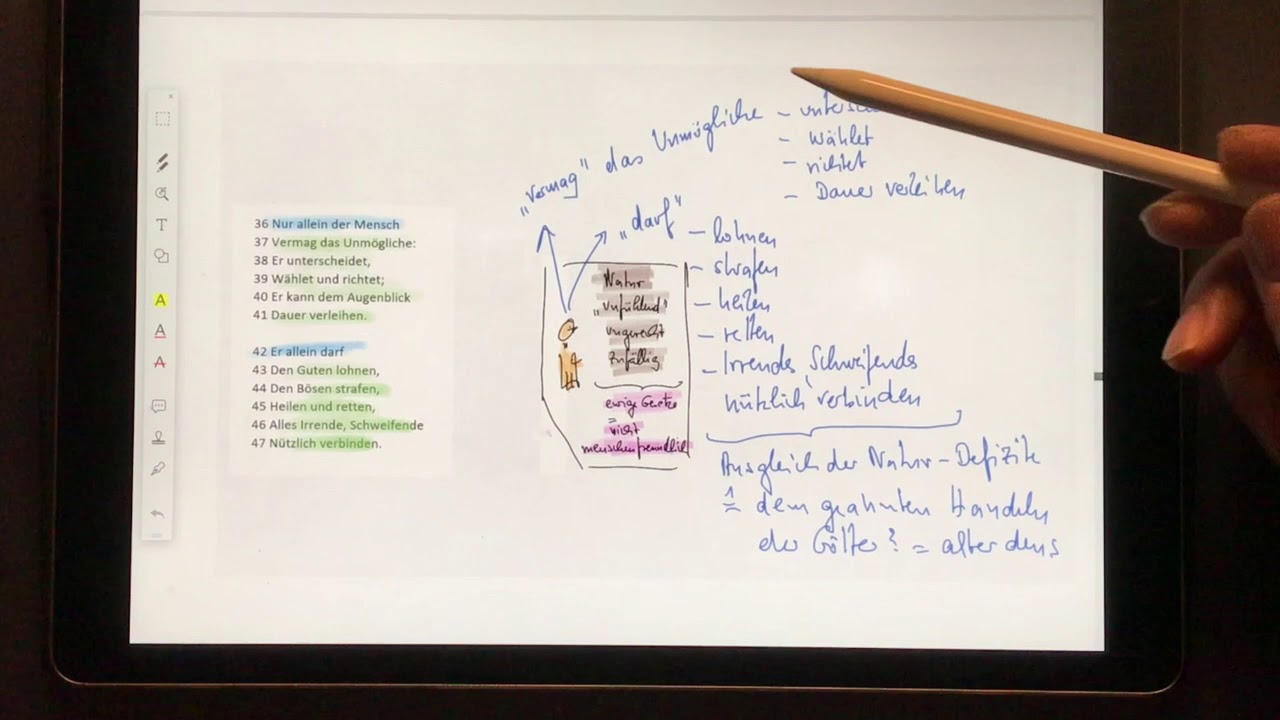 36 Nur allein der Mensch
37 Vermag das Unmögliche:
38 Er unterscheidet,
39 Wählet und richtet;
40 Er kann dem Augenblick
41 Dauer verleihen.
42 Er allein darf
43 Den Guten lohnen,
44 Den Bösen strafen,
45 Heilen und retten,
46 Alles Irrende, Schweifende
47 Nützlich verbinden.
„Vermag" das Unmögliche
- wählet
- richtet
- Dauer verleihen
„darf"
- lohnen
- strafen
- heilen
- retten
- Irrendes, Schweifends
nützlich verbinden
Natur
„unfühlend"
ungerecht
zufällig
ewige Gesetze
=
nicht
menschenfreundlich
Ausgleich der Natur-Defizite
≙ dem geahnten Handeln
der Götter? = alter deus
T
A
A
A